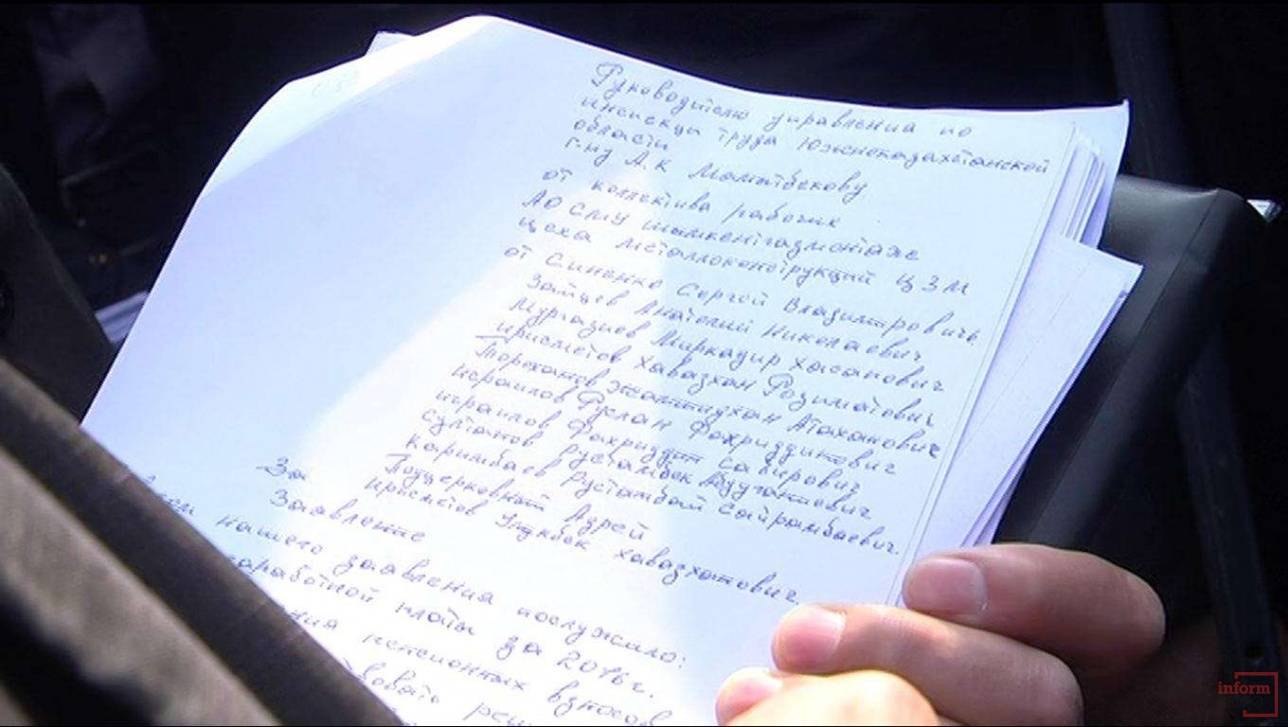 Руководителю управления по
инспекци труда Южноказахстанской
области
г-ну А.К Мамытбекову
от коллектива рабочих
АО СМУ Шымкентгазмонтаже
цеха металлоконструкций ЦЗМ
от Синенко Сергей Владимтрович
Зайцев Анатолий Николаевич
Муртазиев Миркадир Хасанович
Ирисметов Хавазхан Розиматович
Торехатов Атаханович
Исраилов Руслан Фахриддинович
Исраилов Фахриддин Сабирович
Султанов Рустамбек
Каримбаев Рустамбай Сайрамбаевич
Поддерковный Адрей
Ирисметов Улукбек Хавазхатович
За
Заявление
нашего заявления послужило:
заработной платы за 2016г.
пенсионных взносов
inform